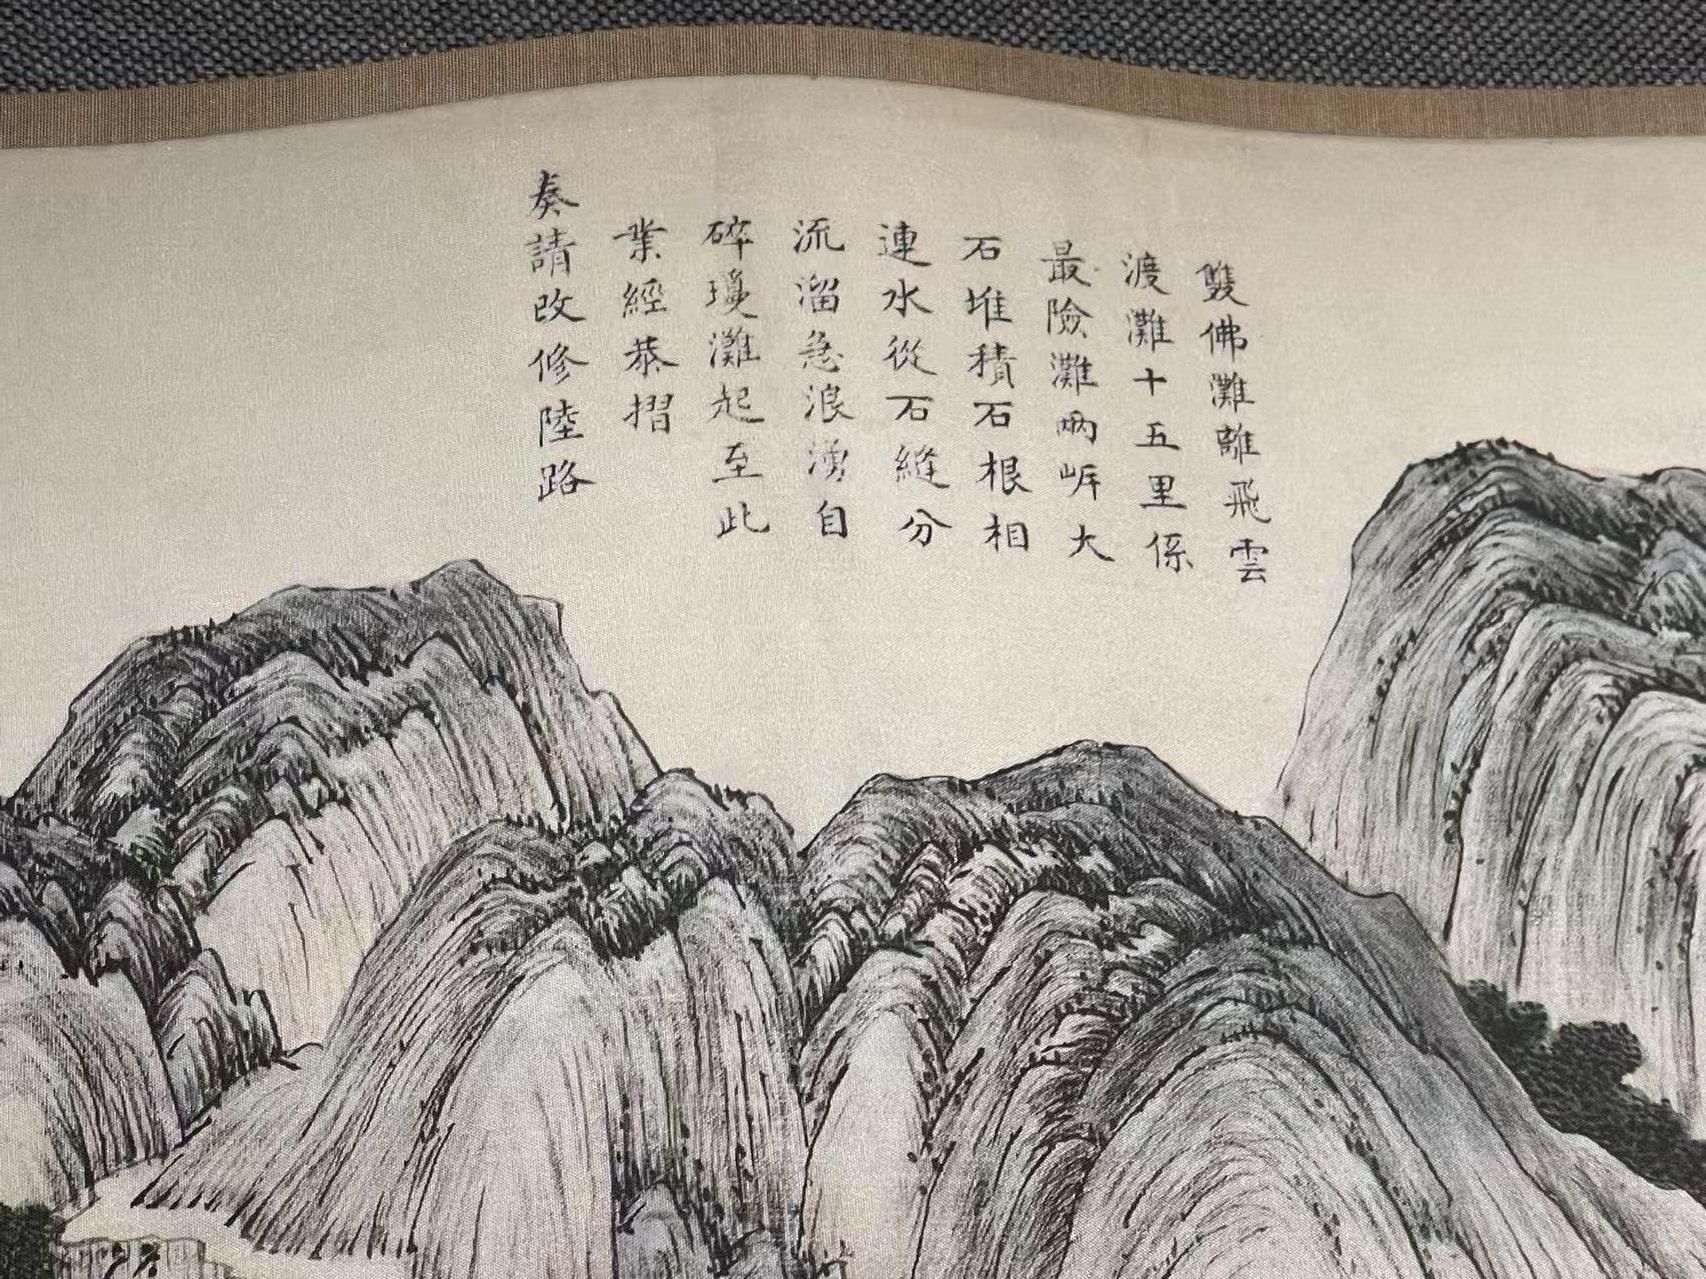 雙佛灘離飛雲
渡灘十五里係
最險灘兩岸大
石堆積石根相
連水從石縫分
流溜急浪湧自
碎瓊灘起至此
業經恭摺
奏請改修陸路